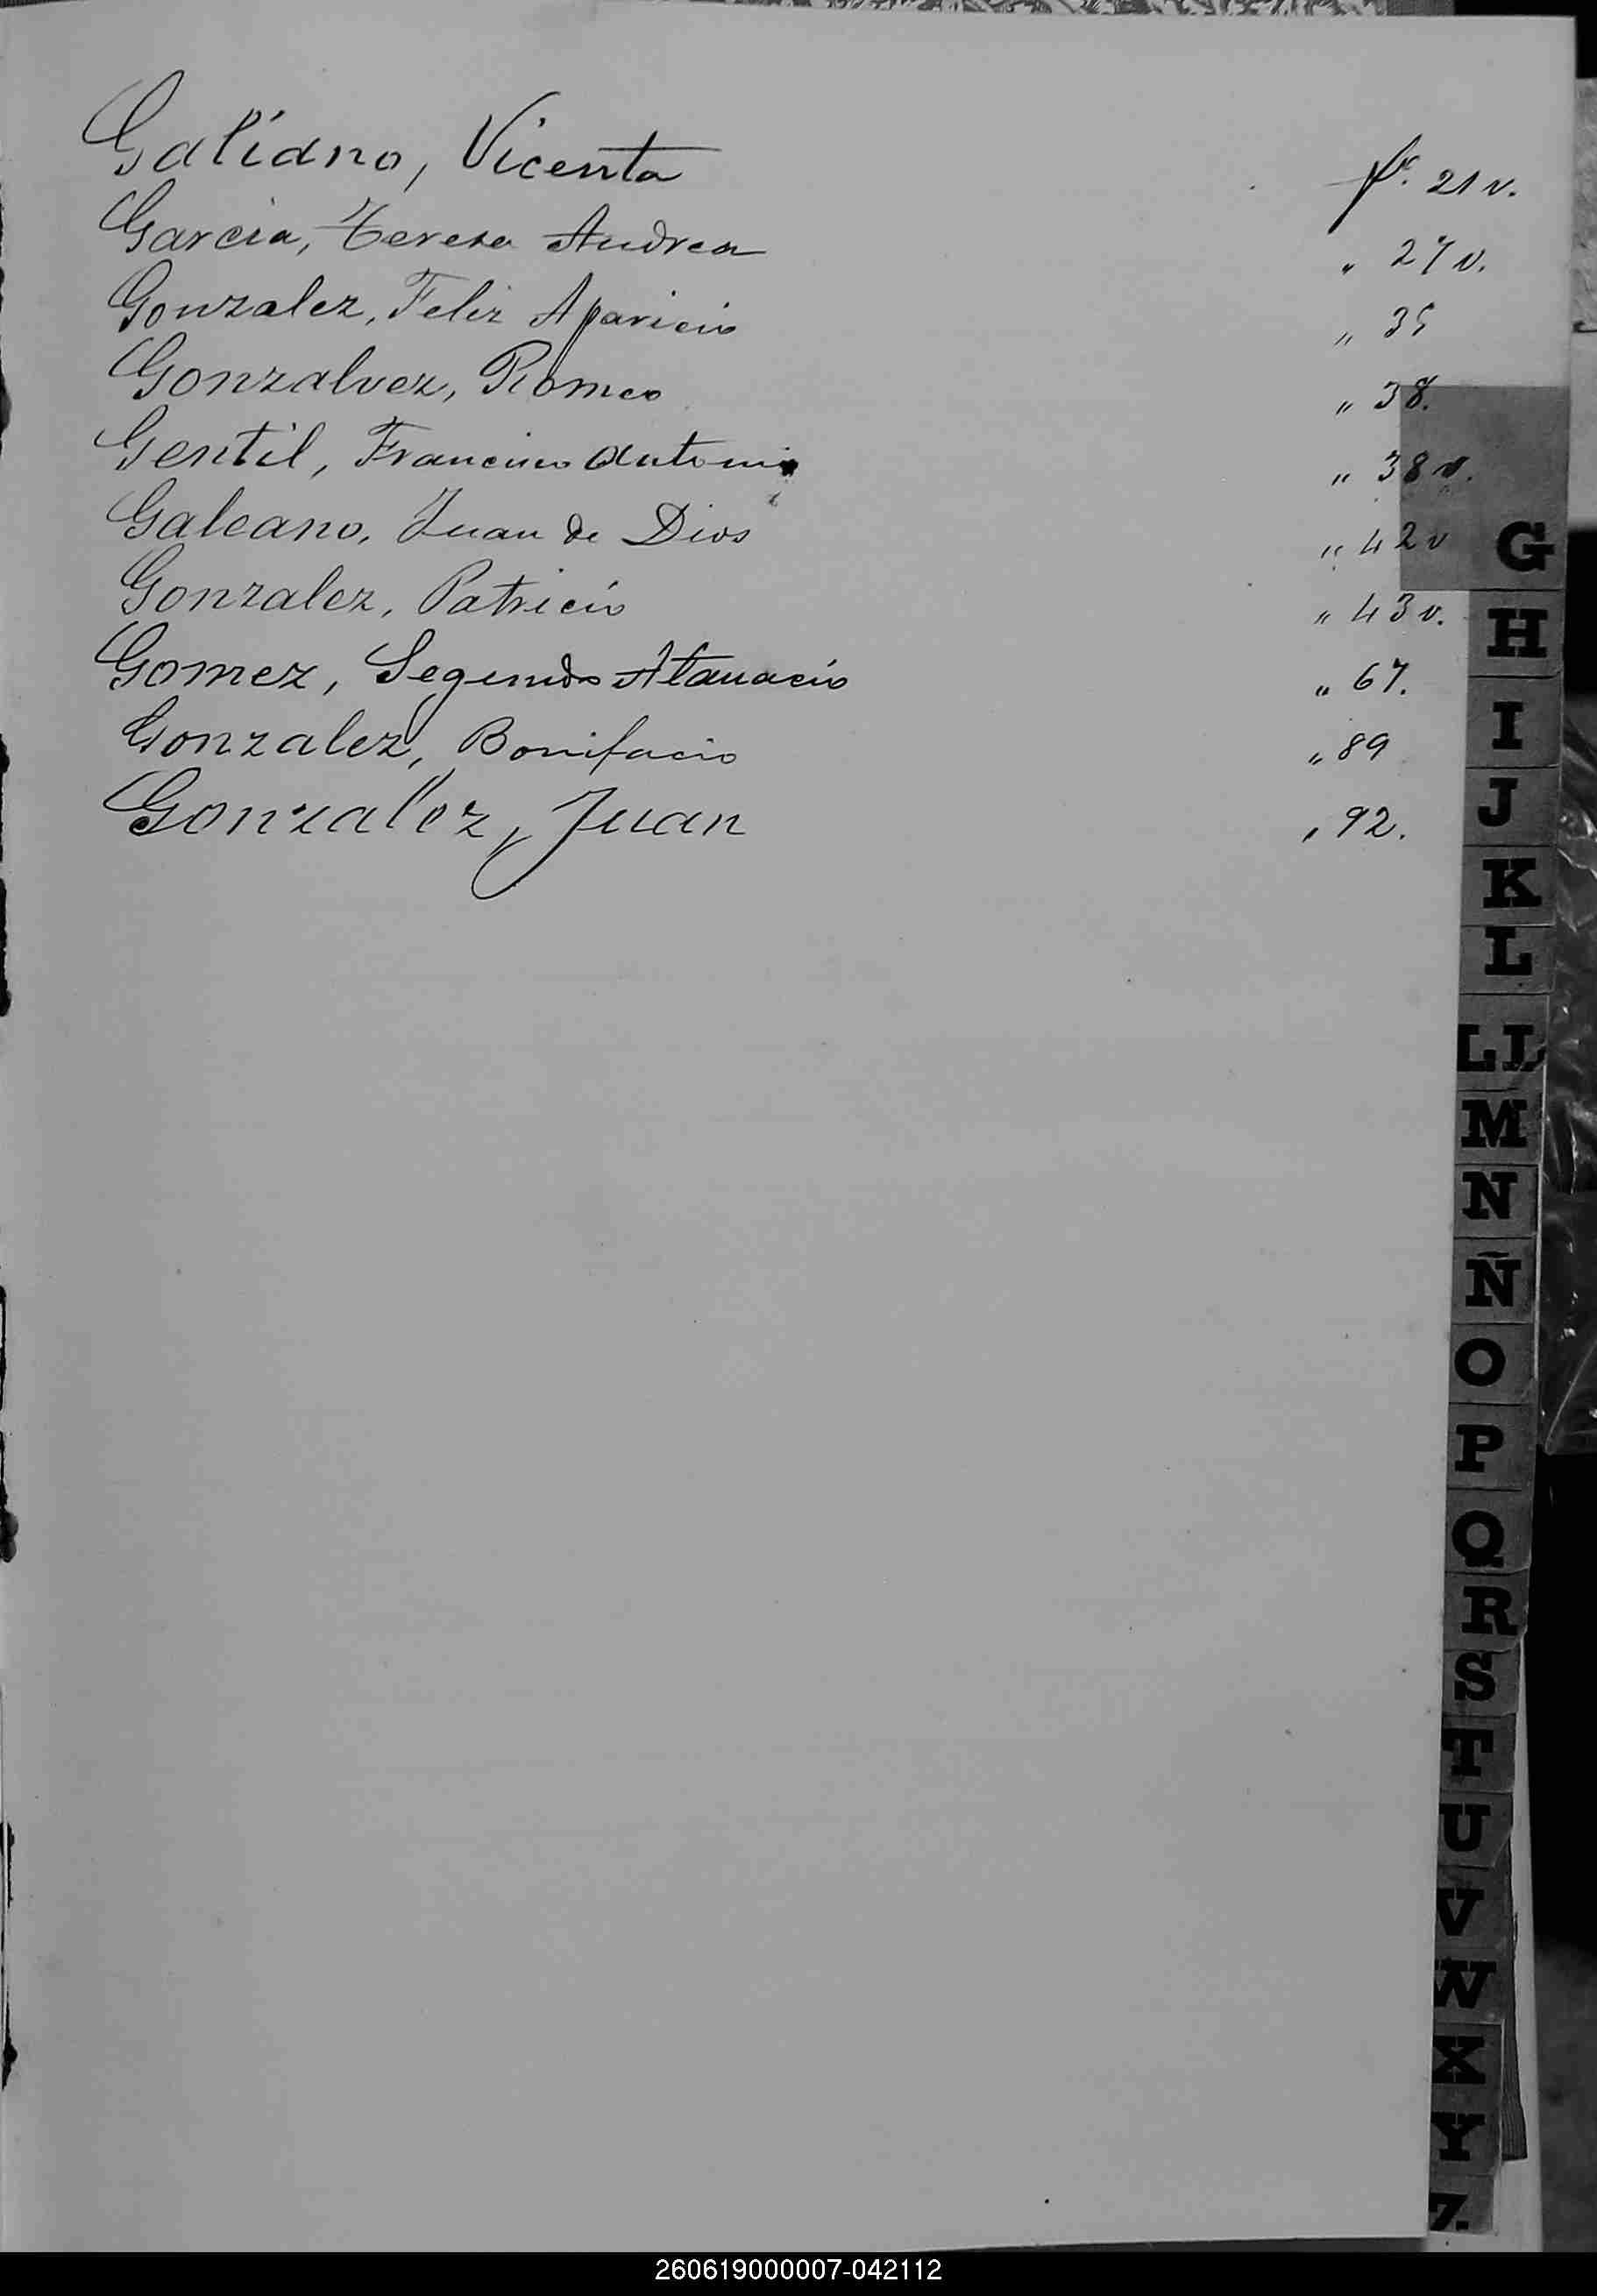 Galiano, Vicenta fo. 21 v.
Garcia, Teresa Andrea " 27 v.
Gonzalez, Felix Aparicio " 35
Gonzalvez, Romeo " 38.
Gentil, Francisco Antonio " 38 v.
Galeano, Juan de Dios " 42 v
Gonzalez, Patricio " 43 v.
Gomez, Segundo Atanacio " 67.
Gonzalez, Bonifacio " 89
Gonzalez, Juan " 92.
G
H
I
J
K
L
LL
M
N
Ñ
O
P
Q
R
S
T
U
V
W
X
Y
Z
260619000007-042112